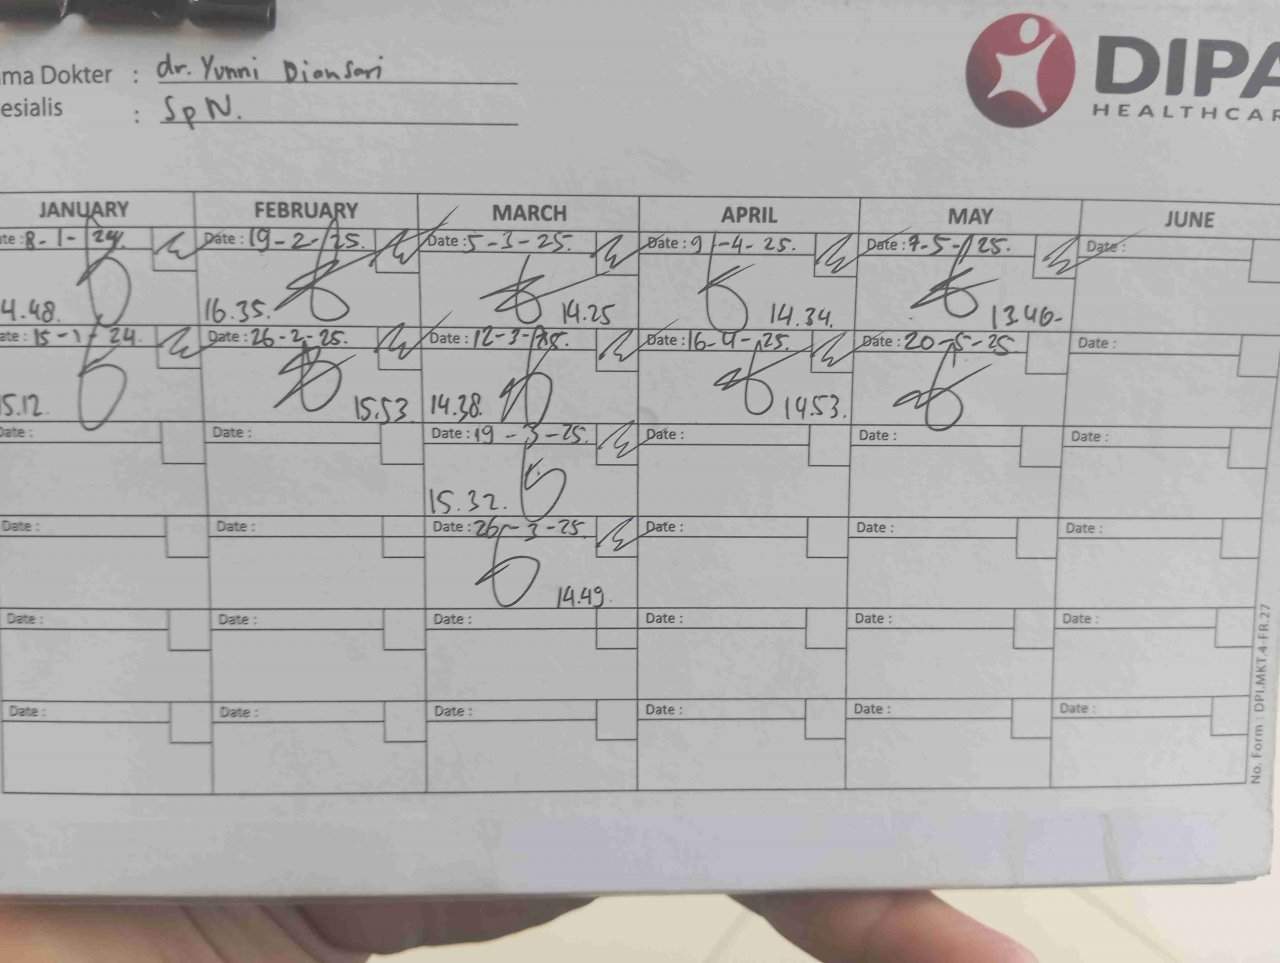 ma Dokter : dr. Yunni Diansari
esialis : SpN.
DIPA
HEALTHCAR
JANUARY FEBRUARY MARCH APRIL MAY JUNE
te: 8-1-24. Date: 19-2-25. Date: 5-3-25. Date: 9-4-25. Date: 7-5-25. Date:
4.48. 16.35. 14.25 14.34. 13.46-
ate: 15-1-24. Date: 26-2-25. Date: 12-3-25. Date: 16-4-25. Date: 20-5-25 Date:
5.12. 15.53 14.38. 14.53.
Date: Date: Date: 19-3-25. Date: Date: Date:
15.32.
Date: Date: Date: 26-3-25. Date: Date: Date:
14.49.
Date: Date: Date: Date: Date: Date:
Date: Date: Date: Date: Date: Date:
No. Form : DPI.MKT.4-FR.27